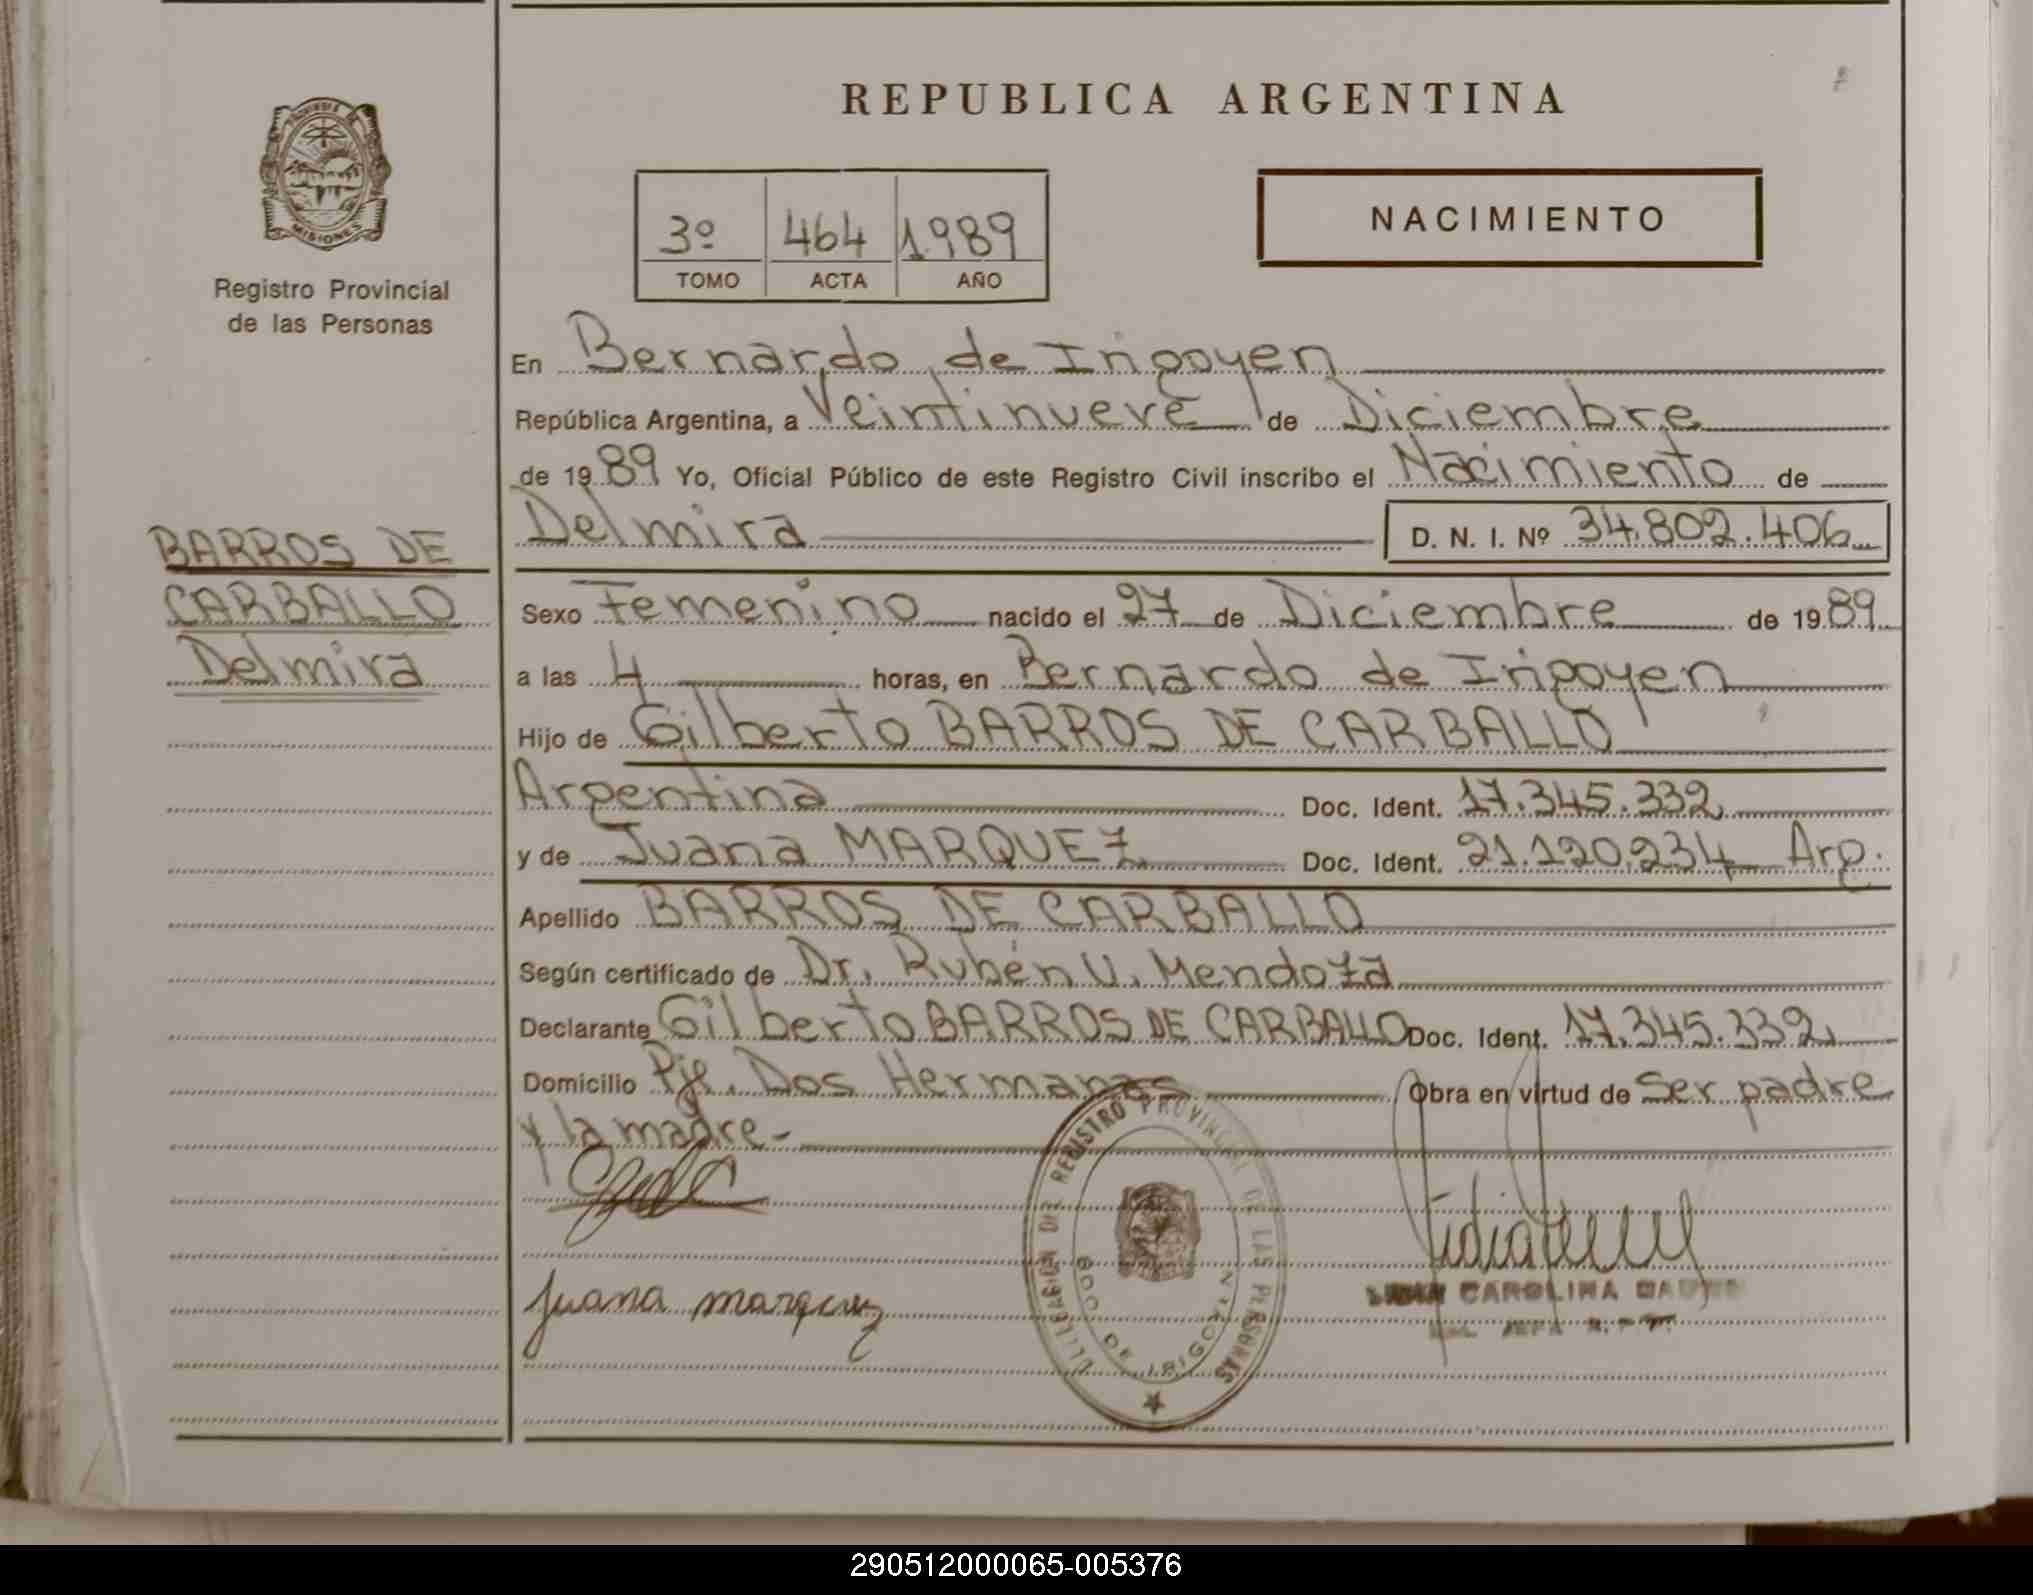 REPUBLICA ARGENTINA
MISIONES
Registro Provincial
de las Personas
3º 464 1989
TOMO ACTA AÑO
NACIMIENTO
En Bernardo de Irigoyen
República Argentina, a Veintinueve de Diciembre
de 1989 Yo, Oficial Público de este Registro Civil inscribo el Nacimiento de
Delmira D. N. I. Nº 34.802.406
BARROS DE
CARBALLO
Delmira
Sexo Femenino nacido el 27 de Diciembre de 1989
a las 4 horas, en Bernardo de Irigoyen
Hijo de Gilberto BARROS DE CARBALLO
Argentina Doc. Ident. 17.345.332
y de Juana MARQUEZ Doc. Ident. 21.120.234 Arg.
Apellido BARROS DE CARBALLO
Según certificado de Dr. Rubén U. Mendoza
Declarante Gilberto BARROS DE CARBALLO Doc. Ident. 17.345.332
Domicilio Pje. Dos Hermanas Obra en virtud de Ser padre
y la madre-
DELEGACION DEL REGISTRO PROVINCIAL DE LAS PERSONAS
BDO. DE IRIGOYEN
Juana marquez
CAROLINA
290512000065-005376